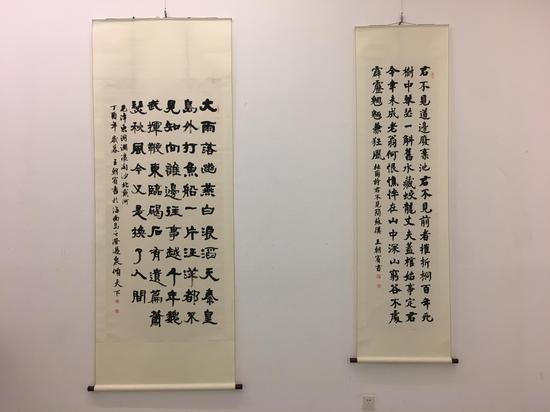 大雨落幽燕白浪滔天秦皇
島外打魚船一片汪洋都不
見知向誰邊往事越千年魏
武揮鞭東臨碣石有遺篇蕭
瑟秋風今又是換了人間
毛澤東詞浪淘沙北戴河
丁酉年歲暮王朝賓書於海南島之澄邁泉傾天下
君不見道邊廢棄池君不見前者摧折桐百年死
樹中琴瑟一斛舊水藏蛟龍丈夫蓋棺始事定君
今幸未成老翁何恨憔悴在山中深山窮谷不處
霹靂魍魎兼狂風 杜甫詩君不見簡蘇徯 王朝賓書